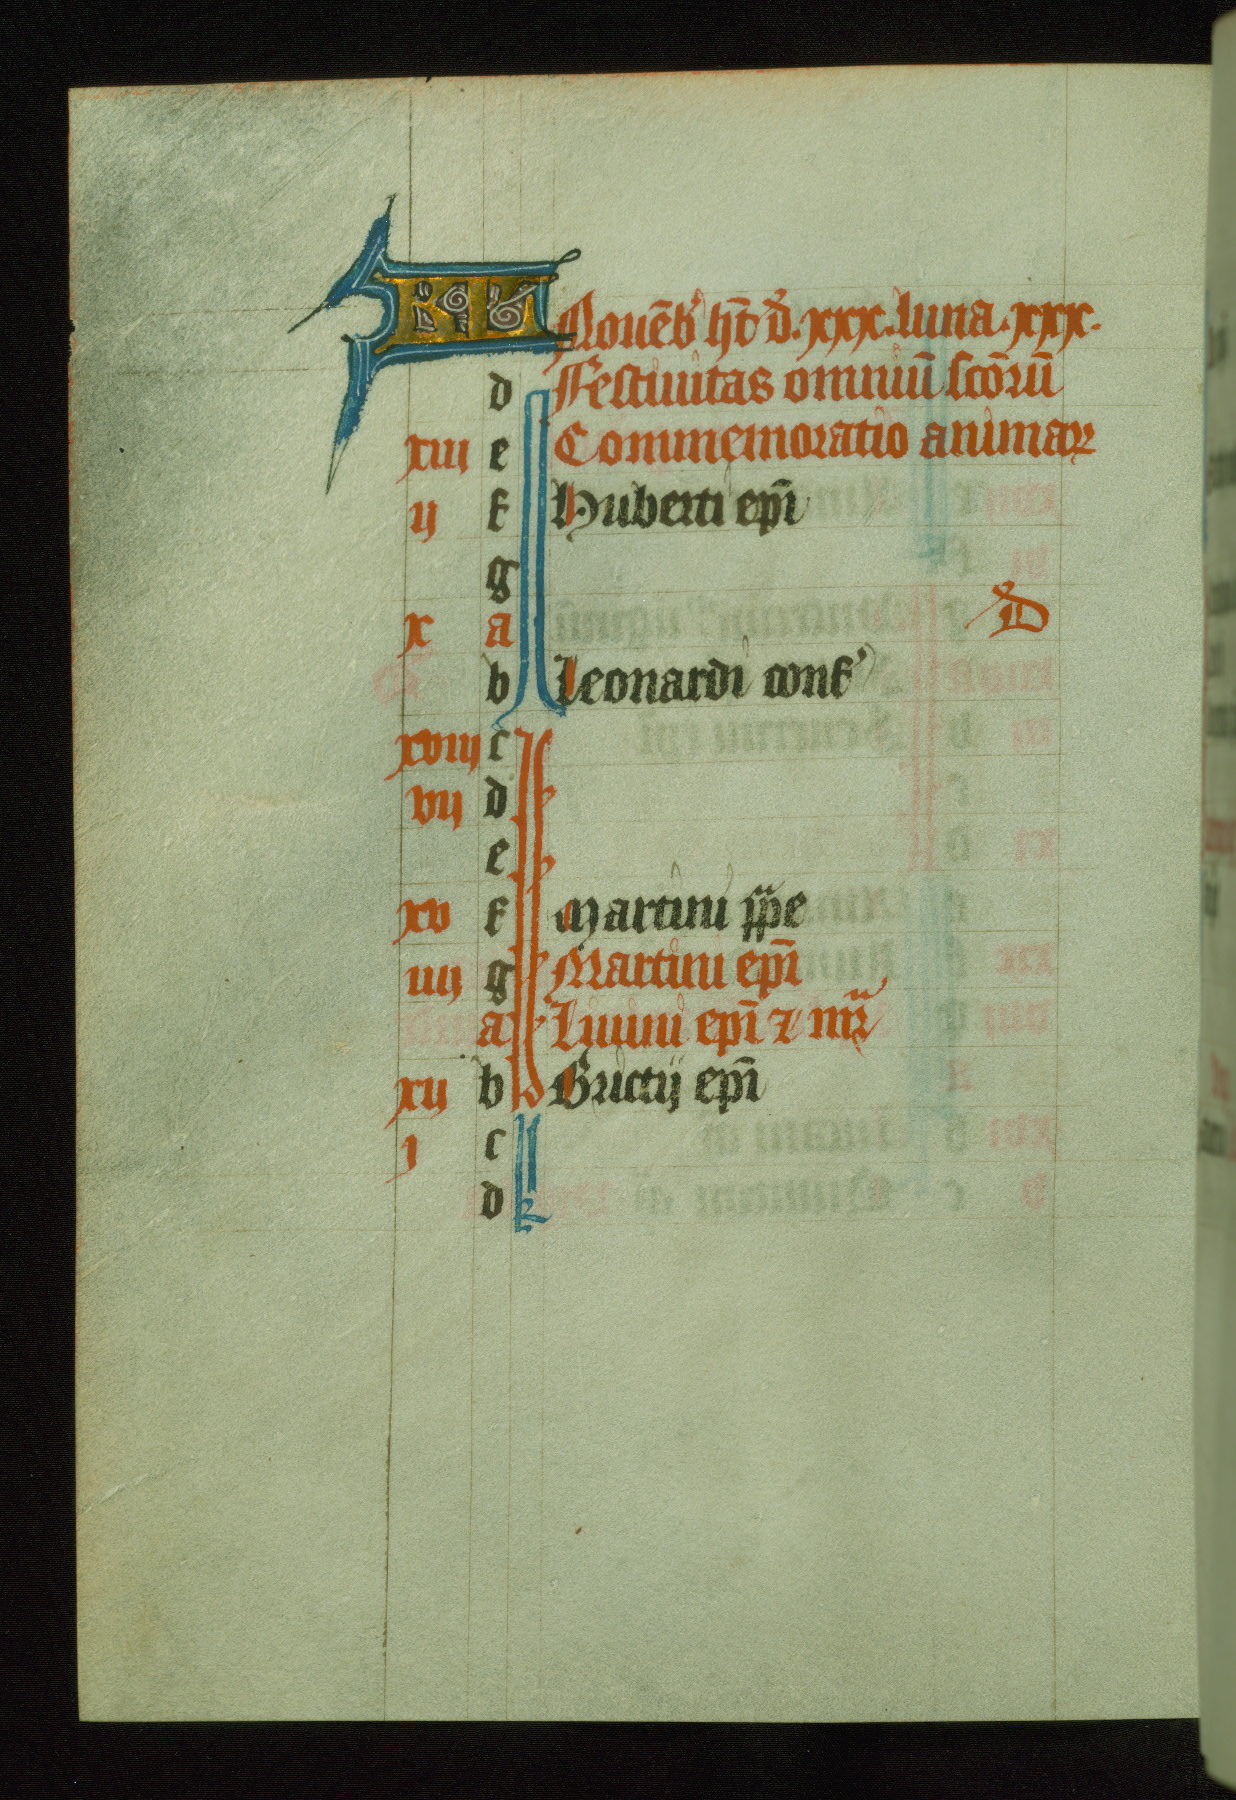 KL Nouēb' hēt d'. xxx. luna. xxx.
d Festiuitas omniū scōrū
xiij e Commemoratio animar
ij f Huberti ep̄i
g
x a D
b Leonardi conf'
xviij c
vij d
e
xv f Martini pp̄e
iiij g Martini ep̄i
a Liuini ep̄i ⁊ mr̄
xij b Brictij ep̄i
j c
d